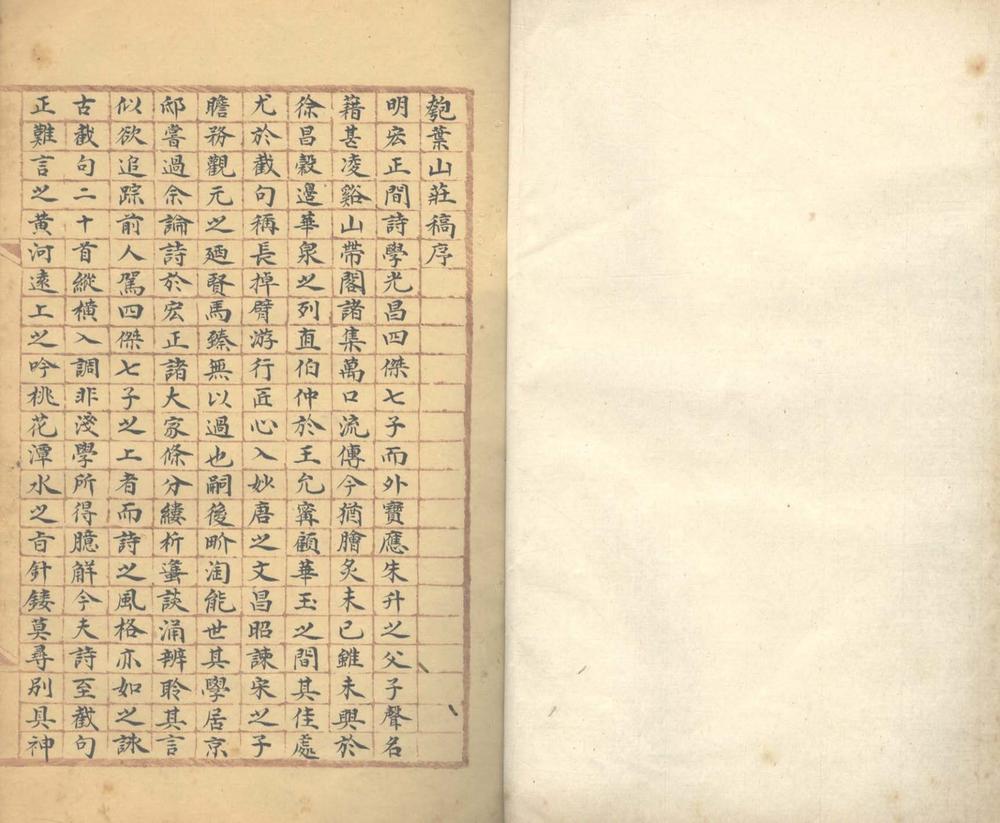 匏葉山莊稿序
明宏正間詩學光昌四傑七子而外寶應朱升之父子聲名
藉甚凌谿山帶閣諸集萬口流傳今猶膾炙未已雖未與於
徐昌穀邊華泉之列直伯仲於王允寗顧華玉之間其佳處
尤於截句稱長掉臂游行匠心入妙唐之文昌昭諫宋之子
瞻務觀元之廼賢馬臻無以過也嗣後畍淘能世其學居京
邸嘗過余論詩於宏正諸大家條分縷析蠭談涌辨聆其言
似欲追踪前人駕四傑七子之上者而詩之風格亦如之詠
古截句二十首縱橫入調非淺學所得臆解今夫詩至截句
正難言之黃河遠上之吟桃花潭水之旨針鏤莫尋別具神